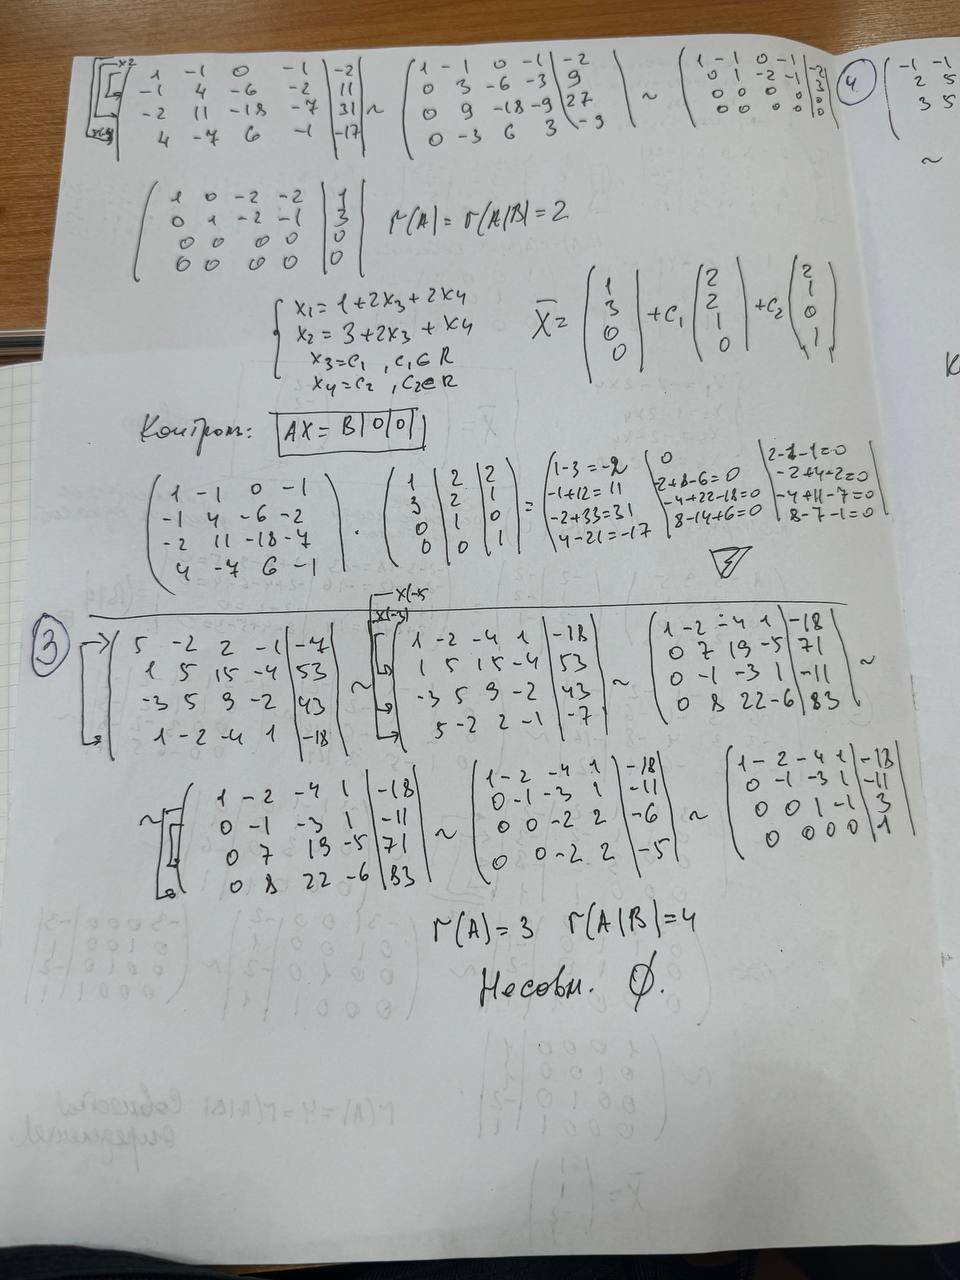 x2
1 -1 0 -1 | -2
-1 4 -6 -2 | 11
-2 11 -18 -7 | 31
4 -7 6 -1 | -17
~
1 -1 0 -1 | -2
0 3 -6 -3 | 9
0 9 -18 -9 | 27
0 -3 6 3 | -9
~
1 -1 0 -1 | -2
0 1 -2 -1 | 3
0 0 0 0 | 0
0 0 0 0 | 0
4.
-1 -1
2 5
3 5
~
1 0 -2 -2 | 1
0 1 -2 -1 | 3
0 0 0 0 | 0
0 0 0 0 | 0
r(A) = r(A|B) = 2
x1 = 1 + 2x3 + 2x4
x2 = 3 + 2x3 + x4
x3 = c1, c1 ∈ R
x4 = c2, c2 ∈ R
X =
1
3
0
0
+ c1
2
2
1
0
+ c2
2
1
0
1
Контроль: AX = B|0|0|
1 -1 0 -1
-1 4 -6 -2
-2 11 -18 -7
4 -7 6 -1
·
1 | 2 | 2
3 | 2 | 1
0 | 1 | 0
0 | 0 | 1
=
1-3=-2 | 0 | 2-1-1=0
-1+12=11 | -2+8-6=0 | -2+4-2=0
-2+33=31 | -4+22-18=0 | -4+11-7=0
4-21=-17 | 8-14+6=0 | 8-7-1=0
3
5 -2 2 -1 | -7
1 5 15 -4 | 53
-3 5 9 -2 | 43
1 -2 -4 1 | -18
~
x(-5
x(-3)
1 -2 -4 1 | -18
1 5 15 -4 | 53
-3 5 9 -2 | 43
5 -2 2 -1 | -7
~
1 -2 -4 1 | -18
0 7 19 -5 | 71
0 -1 -3 1 | -11
0 8 22 -6 | 83
~
~
1 -2 -4 1 | -18
0 -1 -3 1 | -11
0 7 19 -5 | 71
0 8 22 -6 | 83
~
1 -2 -4 1 | -18
0 -1 -3 1 | -11
0 0 -2 2 | -6
0 0 -2 2 | -5
~
1 -2 -4 1 | -18
0 -1 -3 1 | -11
0 0 1 -1 | 3
0 0 0 0 | 1
r(A) = 3 r(A|B) = 4
Несовм. Ø.